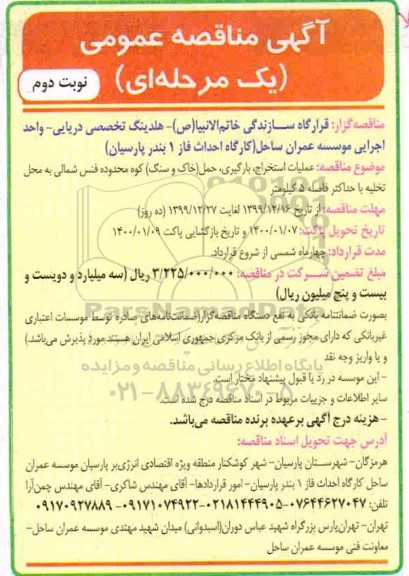 آگهی مناقصه عمومی
(یک مرحله‌ای)
نوبت دوم
مناقصه‌گزار: قرارگاه سازندگی خاتم‌الانبیا(ص)- هلدینگ تخصصی دریایی- واحد
اجرایی موسسه عمران ساحل(کارگاه احداث فاز ۱ بندر پارسیان)
موضوع مناقصه: عملیات استخراج، بارگیری، حمل(خاک و سنگ) کوه محدوده فنس شمالی به محل
تخلیه با حداکثر فاصله ۵ کیلومتر
مهلت مناقصه: از تاریخ ۱۳۹۹/۱۲/۱۶ لغایت ۱۳۹۹/۱۲/۲۷ (ده روز)
تاریخ تحویل پاکت: ۱۴۰۰/۰۱/۰۷ و تاریخ بازگشایی پاکت ۱۴۰۰/۰۱/۰۹
مدت قرارداد: چهارماه شمسی از شروع قرارداد.
مبلغ تضمین شرکت در مناقصه: ۳/۲۲۵/۰۰۰/۰۰۰ ریال (سه میلیارد و دویست و
بیست و پنج میلیون ریال)
بصورت ضمانتنامه بانکی به نفع دستگاه مناقصه‌گزار(ضمانتنامه‌های صادره توسط موسسات اعتباری
غیربانکی که دارای مجوز رسمی از بانک مرکزی جمهوری اسلامی ایران هستند مورد پذیرش می‌باشد)
و یا واریز وجه نقد
- این موسسه در رد یا قبول پیشنهاد مختار است.
سایر اطلاعات و جزییات مربوط در اسناد مناقصه درج شده است.
- هزینه درج آگهی برعهده برنده مناقصه می‌باشد.
آدرس جهت تحویل اسناد مناقصه:
هرمزگان- شهرستان پارسیان- شهر کوشکنار منطقه ویژه اقتصادی انرژی‌بر پارسیان موسسه عمران
ساحل کارگاه احداث فاز ۱ بندر پارسیان- امور قراردادها- آقای مهندس شاکری- آقای مهندس چمن‌آرا
تلفن: ۰۷۶۴۴۶۲۷۰۴۷-۰۲۱۸۱۴۴۴۹۰۵-۰۹۱۷۱۰۷۴۹۲۲- ۰۹۱۷۰۹۲۷۸۸۹
تهران- تهران‌پارس بزرگراه شهید عباس دوران(اسبدوانی) میدان شهید مهتدی موسسه عمران ساحل-
معاونت فنی موسسه عمران ساحل
ParsNamadData
پایگاه اطلاع رسانی مناقصه و مزایده